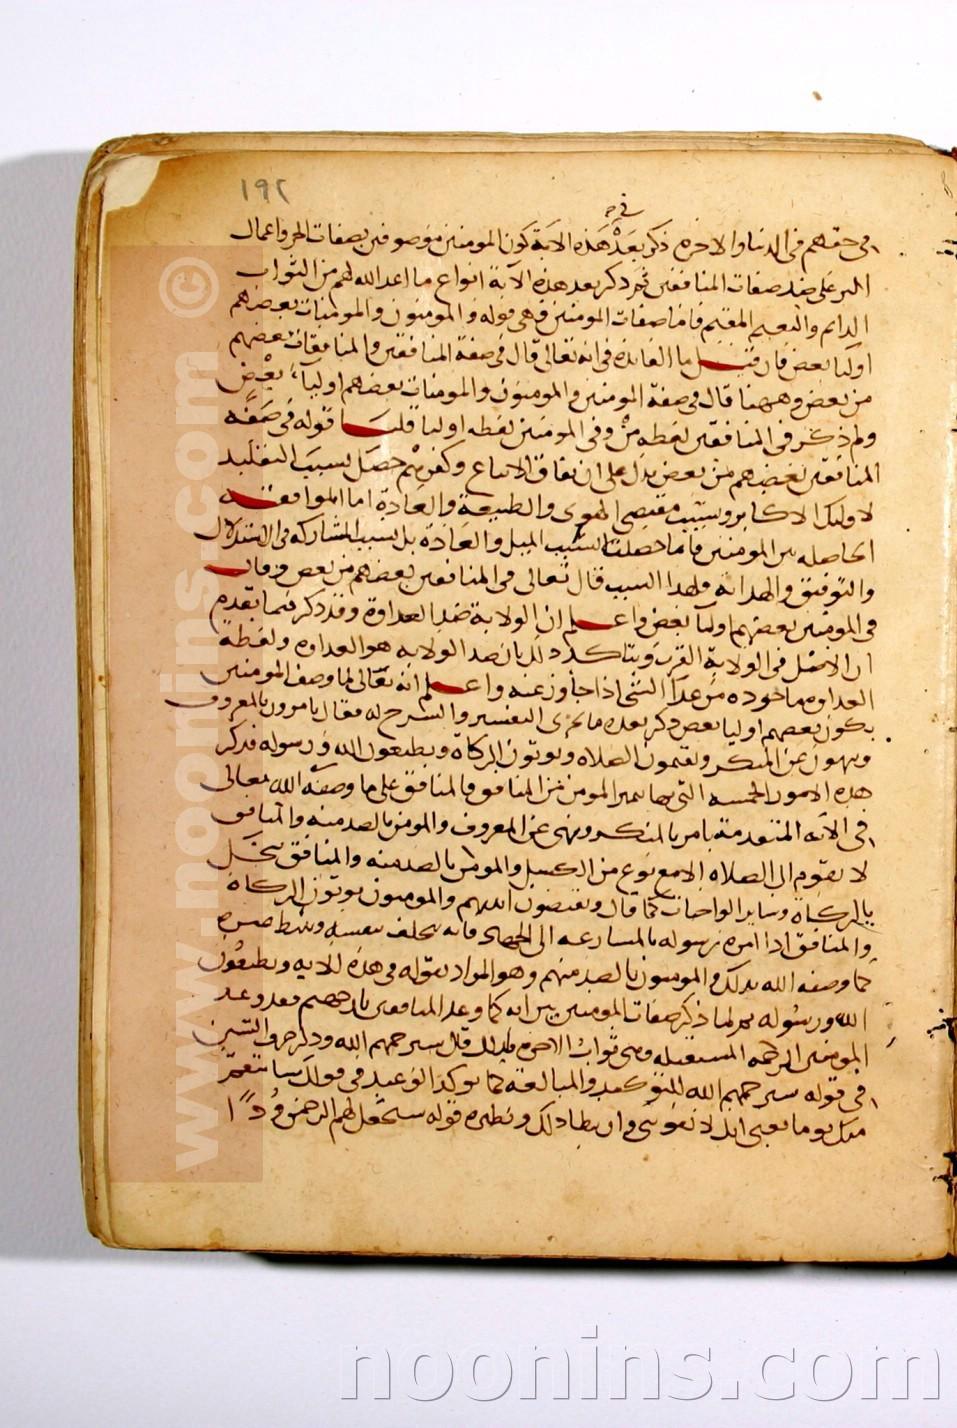 ١٩٢
في حقهم في الدنيا والاخرة ذكر بعد هذه الاية كون المومنين موصوفين بصفات الخير واعمال
البر على ضد صفات المنافقين ثم ذكر بعد هذه الآية انواع ما اعد الله لهم من الثواب
الدائم والنعيم المقيم فاما صفات المومنين فهي قوله والمومنون والمومنات بعضهم
اوليا بعض فان قيل ما الفائدة في انه تعالى قال في صفة المنافقين والمنافقات بعضهم
من بعض وههنا قال في صفة المومنين والمومنون والمومنات بعضهم اولياء بعض
ولم ذكر في المنافقين لفظه من وفي المومنين لفظه اوليا قلنا قوله في صفة
المنافقين بعضهم من بعض يدل على ان نفاق الاتباع وكفرهم حصل بسبب التقليد
لاولئك الاكابر وبسبب مقتضى الهوى والطبيعة والعادة اما الموافقة
الحاصله بين المومنين فانما حصلت لا بسبب الميل والعادة بل بسبب المشاركه في الاستدلال
والتوفيق والهداية فلهذا السبب قال تعالى في المنافقين بعضهم من بعض وقال
في المومنين بعضهم اوليا بعض واعلم ان الولاية ضد العداوة وقد ذكر فيما تقدم
ان الاصل في الولاية القرب ويتاكد ذلك بان ضد الولايه هو العداوه ولفظة
العداوه ماخوذه من عدا الشئ اذا جاوز عنه واعلم انه تعالى لما وصف المومنين
بكون بعضهم اوليا بعض ذكر بعده ما يجري التفسير والشرح له فقال يامرون بالمعروف
وينهون عن المنكر ويقيمون الصلاه ويوتون الزكاة ويطيعون الله ورسوله فذكر
هذه الامور الخمسه التي بها يميز المومن من المنافق فالمنافق على ما وصفه الله تعالى
في الآيه المتقدمة يامر بالمنكر وينهى عن المعروف والمومن بالضد منه والمنافق
لا يقوم الى الصلاه الا مع نوع من الكسل والمومن بالضد منه والمنافق يبخل
بالزكاة وساير الواجبات كما قال ويقبضون ايديهم والمومنون يوتون الزكاة
والمنافق اذا امره رسوله بالمسارعه الى الجهاد فانه يتخلف بنفسه ويثبط غيره
كما وصفه الله بذلك والمومنون بالضد منهم وهو المراد بقوله في هذه الايه ويطيعون
الله ورسوله ثم لما ذكر صفات المومنين بين انه كما وعد المنافقين نار جهنم فقد وعد
المومنين الرحمه المستقبله وهي ثواب الاخرة فلذلك قال سيرحمهم الله وذكر حرف السين
في قوله سيرحمهم الله للتوكيد والمبالغة كما يوكد الوعيد في قولك سانتقم
منك يوما يعني انك لا تفوتني وان تباطا ذلك ونظيره قوله سيجعل لهم الرحمن ودًّا
www.noonins.com ©
noonins.com